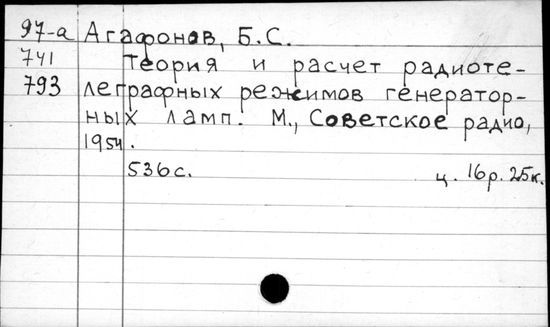 97-а Агафонов, Б.С.
741 Теория и расчет радиоте-
793 леграфных режимов генератор-
ных ламп. М., Советское радио,
1954.
536с. ц. 16р. 25к.